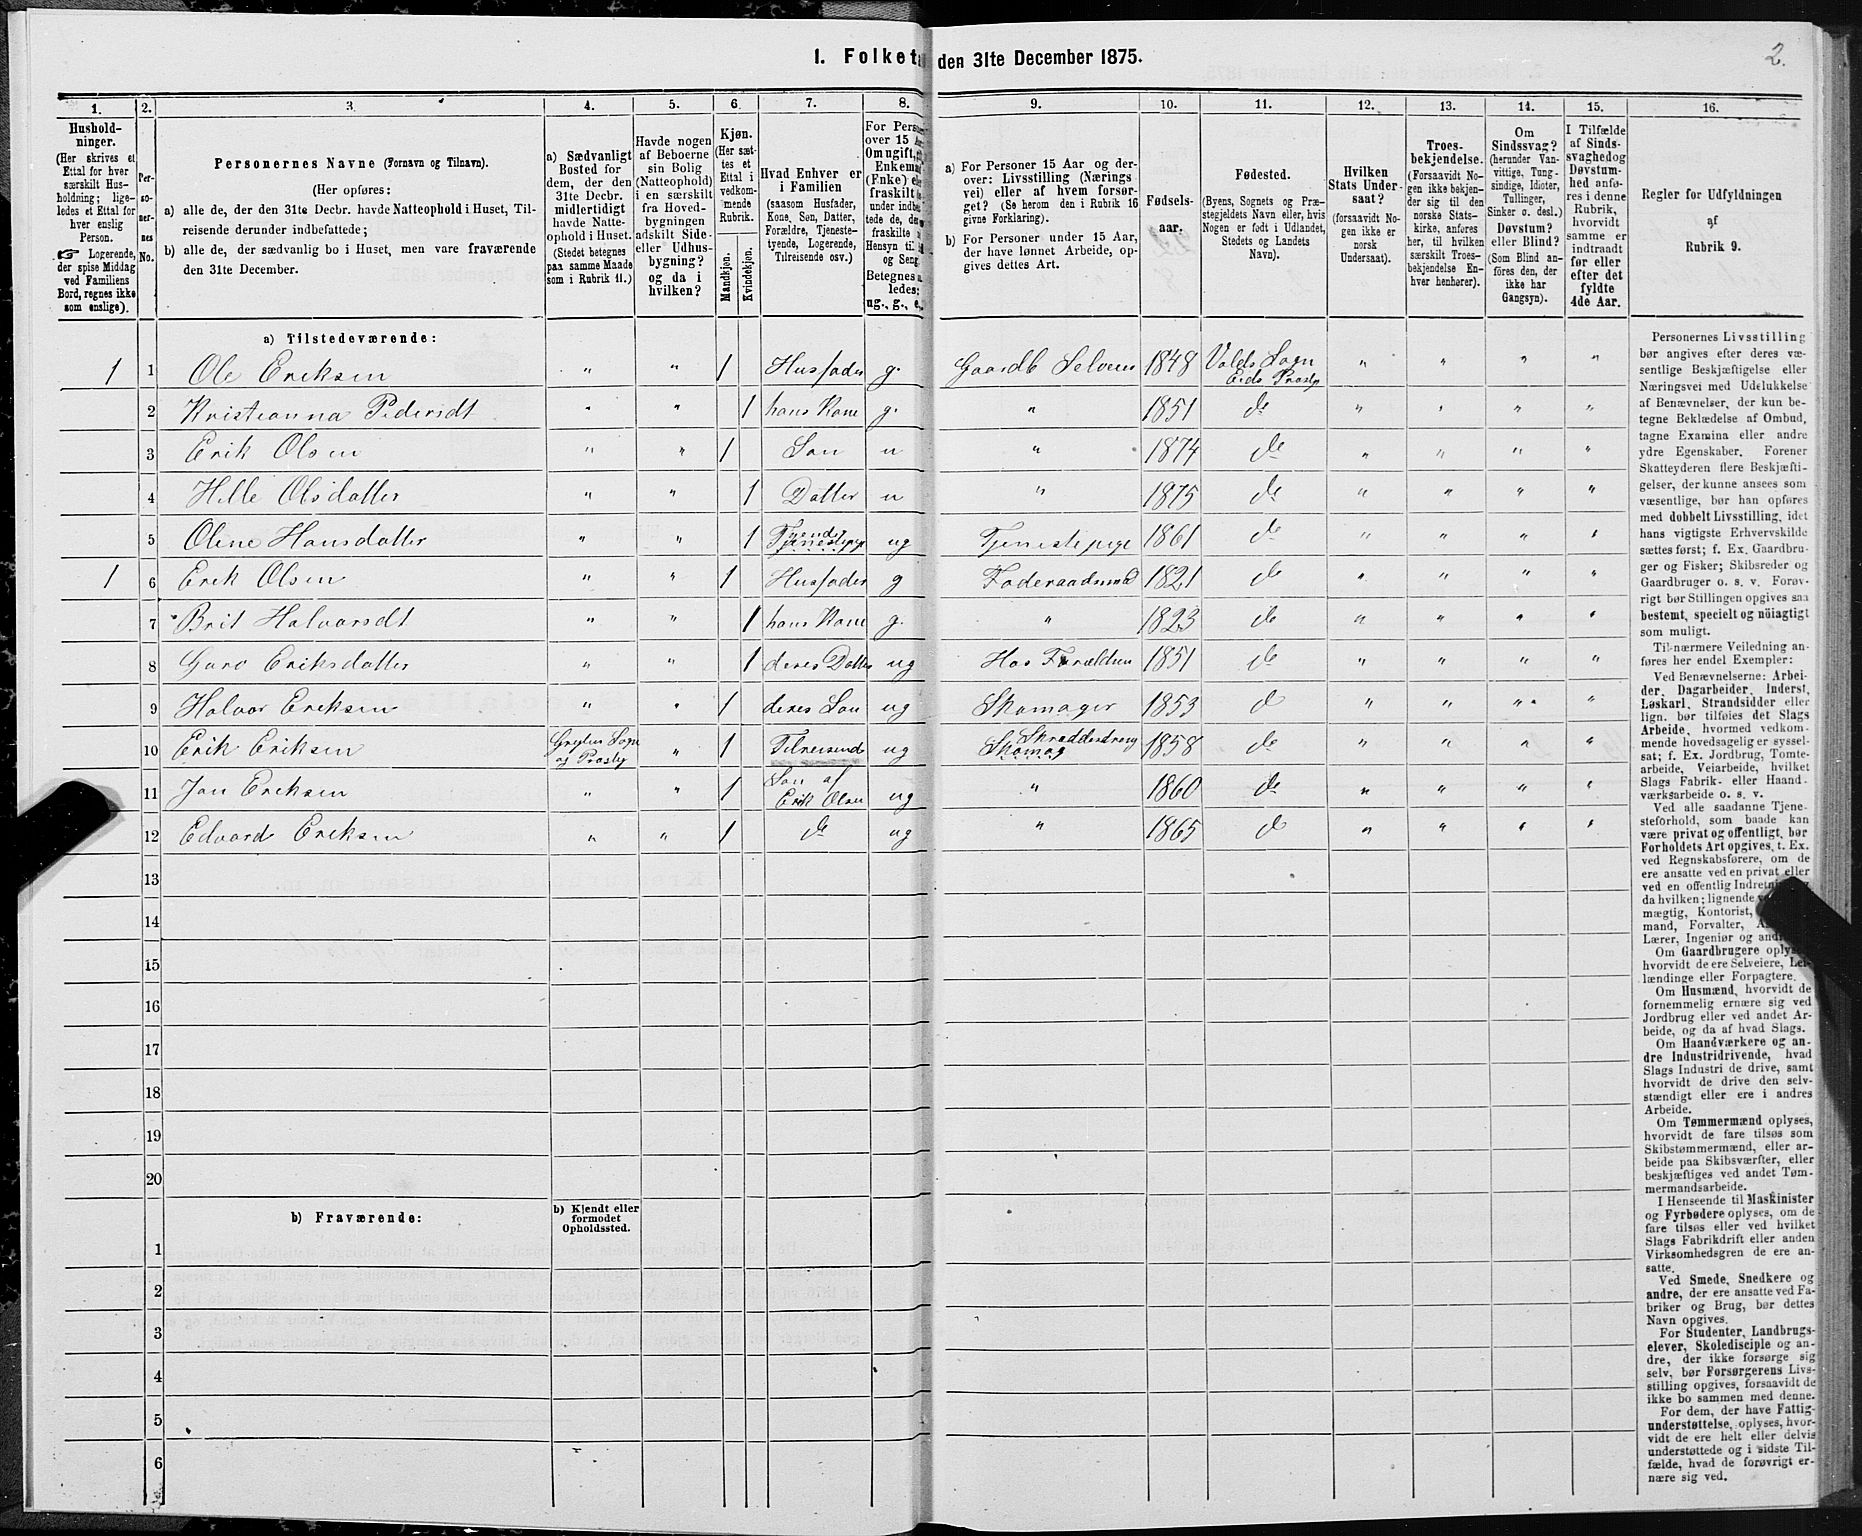 I. Folketal den 31te December 1875.
2.
1. 2. 3. 4. 5. 6. 7. 8. 9. 10. 11. 12. 13. 14. 15. 16.
Hushold-
ninger.
(Her skrives et
Ettal for hver
særskilt Hus-
holdning; lige-
ledes et Ettal for
hver enslig
Person.
☞ Logerende,
der spise Middag
ved Familiens
Bord, regnes ikke
som enslige).
Per-
so-
ner-
nes
No.
Personernes Navne (Fornavn og Tilnavn).
(Her opføres:
a) alle de, der den 31te Decbr. havde Natteophold i Huset, Til-
reisende derunder indbefattede;
b) alle de, der sædvanlig bo i Huset, men vare fraværende
den 31te December.
a) Sædvanligt
Bosted for
dem, der den
31te Decbr.
midlertidigt
havde Natte-
ophold i Huset.
(Stedet betegnes
paa samme Maade
som i Rubrik 11.)
Havde nogen
af Beboerne
sin Bolig
(Natteophold)
i en særskilt
fra Hoved-
bygningen
adskilt Side-
eller Udhus-
bygning?
og da i
hvilken?
Kjøn.
(Her sæt-
tes et
Ettal i
vedkom-
mende
Rubrik.
Mandkjøn.
Kvindekjøn.
Hvad Enhver er
i Familien
(saasom Husfader,
Kone, Søn, Datter,
Forældre, Tjeneste-
tyende, Logerende,
Tilreisende osv.)
For Pers
over 15 A
Om ugift,
Enkema
(Enke) el
fraskilt
under indb
tede de, de
fraskilte
Hensyn til
og Seng.
Betegnes
ledes:
ug., g., e.,
a) For Personer 15 Aar og der-
over: Livsstilling (Nærings
vei) eller af hvem forsør-
get? (Se herom den i Rubrik 16
givne Forklaring).
b) For Personer under 15 Aar,
der have lønnet Arbeide, op-
gives dettes Art.
Fødsels-
aar.
Fødested.
(Byens, Sognets og Præ-
stegjeldets Navn eller, hvis
Nogen er født i Udlandet,
Stedets og Landets
Navn).
Hvilken
Stats Under-
saat?
(forsaavidt No-
gen ikke er
norsk
Undersaat).
Troes-
bekjendelse.
(Forsaavidt No-
gen ikke bekjen-
der sig til den
norske Stats-
kirke, anføres
her, til hvilken
særskilt Troes-
bekjendelse En-
hver henhører).
Om
Sindssvag?
(herunder Van-
vittige, Tung-
sindige, Idioter,
Tullinger,
Sinker o. desl.)
Døvstum?
eller Blind?
(Som Blind an-
føres den, der
ikke har
Gangsyn).
I Tilfælde
af Sinds-
svaghed og
Døvstum-
hed anfø-
res i denne
Rubrik,
hvorvidt
samme er
indtraadt
før eller
efter det
fyldte
4de Aar.
Regler for Udfyldningen
af
Rubrik 9.
a) Tilstedeværende:
1 1 Ole Eriksen " " 1 Husfader g. Gaardb Selveier 1848 Volds Sogn Eids Prostg " " " "
2 Kristianna Pedersdt " " 1 hans Kone g. " 1851 do " " " "
3 Erik Olsen " " 1 Søn u " 1874 do " " " "
4 Helle Olsdatter " " 1 Datter u " 1875 do " " " "
5 Oline Hansdatter " " 1 Tjenestepige Tyende ug Tjenestepige 1861 do " " " "
1 6 Erik Olsen " " 1 Husfader g Föderaadsmd 1821 do " " " "
7 Brit Halvorsdt " " 1 hans Kone g. " 1823 do " " " "
8 Guro Eriksdatter " " 1 deres Datter ug Hos Forældrene 1851 do " " " "
9 Halvor Eriksen " " 1 deres Søn ug Skomager 1853 do " " " "
10 Erik Eriksen Grytten Sogn og Prostg " 1 Tilreisende ug Skomag Skrædderdreng 1858 do " " " "
11 Jon Eriksen " " 1 Søn af Erik Olsen ug " 1860 do " " " "
12 Edvard Eriksen " " 1 do ug " 1865 do " " " "
13
14
15
16
17
18
19
20
b) Fraværende:
b) Kjendt eller
formodet
Opholdssted.
1
2
3
4
5
6
Personernes Livsstilling
bør angives efter deres væ-
sentlige Beskjæftigelse eller
Næringsvei med Udelukkelse
af Benævnelser, der kun be-
tegne Beklædelse af Ombud,
tagne Examina eller andre
ydre Egenskaber. Forener
Skatteyderen flere Beskjæfti-
gelser, der kunne ansees som
væsentlige, bør han opføres
med dobbelt Livsstilling, idet
hans vigtigste Erhvervskilde
sættes først; f. Ex. Gaardbru-
ger og Fisker; Skibsreder og
Gaardbruger o. s. v. Forøv-
rigt bør Stillingen opgives saa
bestemt, specielt og nöiagtigt
som muligt.
Til nærmere Veiledning an-
føres her endel Exempler:
Ved Benævnelserne: Arbei-
der, Dagarbeider, Inderst,
Løskarl, Strandsidder eller
lign. bør tilføies det Slags
Arbeide, hvormed vedkom-
mende hovedsagelig er syssel-
sat; f. Ex. Jordbrug, Tomte-
arbeide, Veiarbeide, hvilket
Slags Fabrik- eller Haand-
værksarbeide o. s. v.
Ved alle saadanne Tjene-
steforhold, som baade kan
være privat og offentligt, bør
Forholdets Art opgives, t. Ex.
ved Regnskabsførere, om de
ere ansatte ved en privat eller
ved en offentlig Indretning
da hvilken; lignende
mægtig, Kontorist,
mand, Forvalter,
Lærer, Ingeniør og andre
Om Gaardbrugere oplyses
hvorvidt de ere Selveiere, Lei-
lændinge eller Forpagtere.
Om Husmænd, hvorvidt de
fornemmelig ernære sig ved
Jordbrug eller ved andet Ar-
beide, og da af hvad Slags.
Om Haandværkere og an-
dre Industridrivende, hvad
Slags Industri de drive, samt
hvorvidt de drive den selv-
stændigt eller ere i andres
Arbeide.
Om Tømmermænd oplyses,
hvorvidt de fare tilsøs som
Skibstømmermænd, eller ar-
beide paa Skibsværfter, eller
beskjæftiges ved andet Tøm-
mermandsarbeide.
I Henseende til Maskinister
og Fyrbødere oplyses, om de
fare tilsøs eller ved hvilket
Slags Fabrikdrift eller anden
Virksomhedsgren de ere an-
satte.
Ved Smede, Snedkere og
andre, der ere ansatte ved Fa-
briker og Brug, bør dettes
Navn opgives.
For Studenter, Landbrugs-
elever, Skoledisciple og an-
dre, der ikke forsørge sig
selv, bør Forsørgerens Livs-
stilling opgives, forsaavidt de
ikke bo sammen med denne.
For dem, der have Fattig-
understøttelse, oplyses, hvor-
vidt de ere helt eller delvis
understøttede og i sidste Til-
fælde, hvad de forøvrigt er-
nære sig ved.